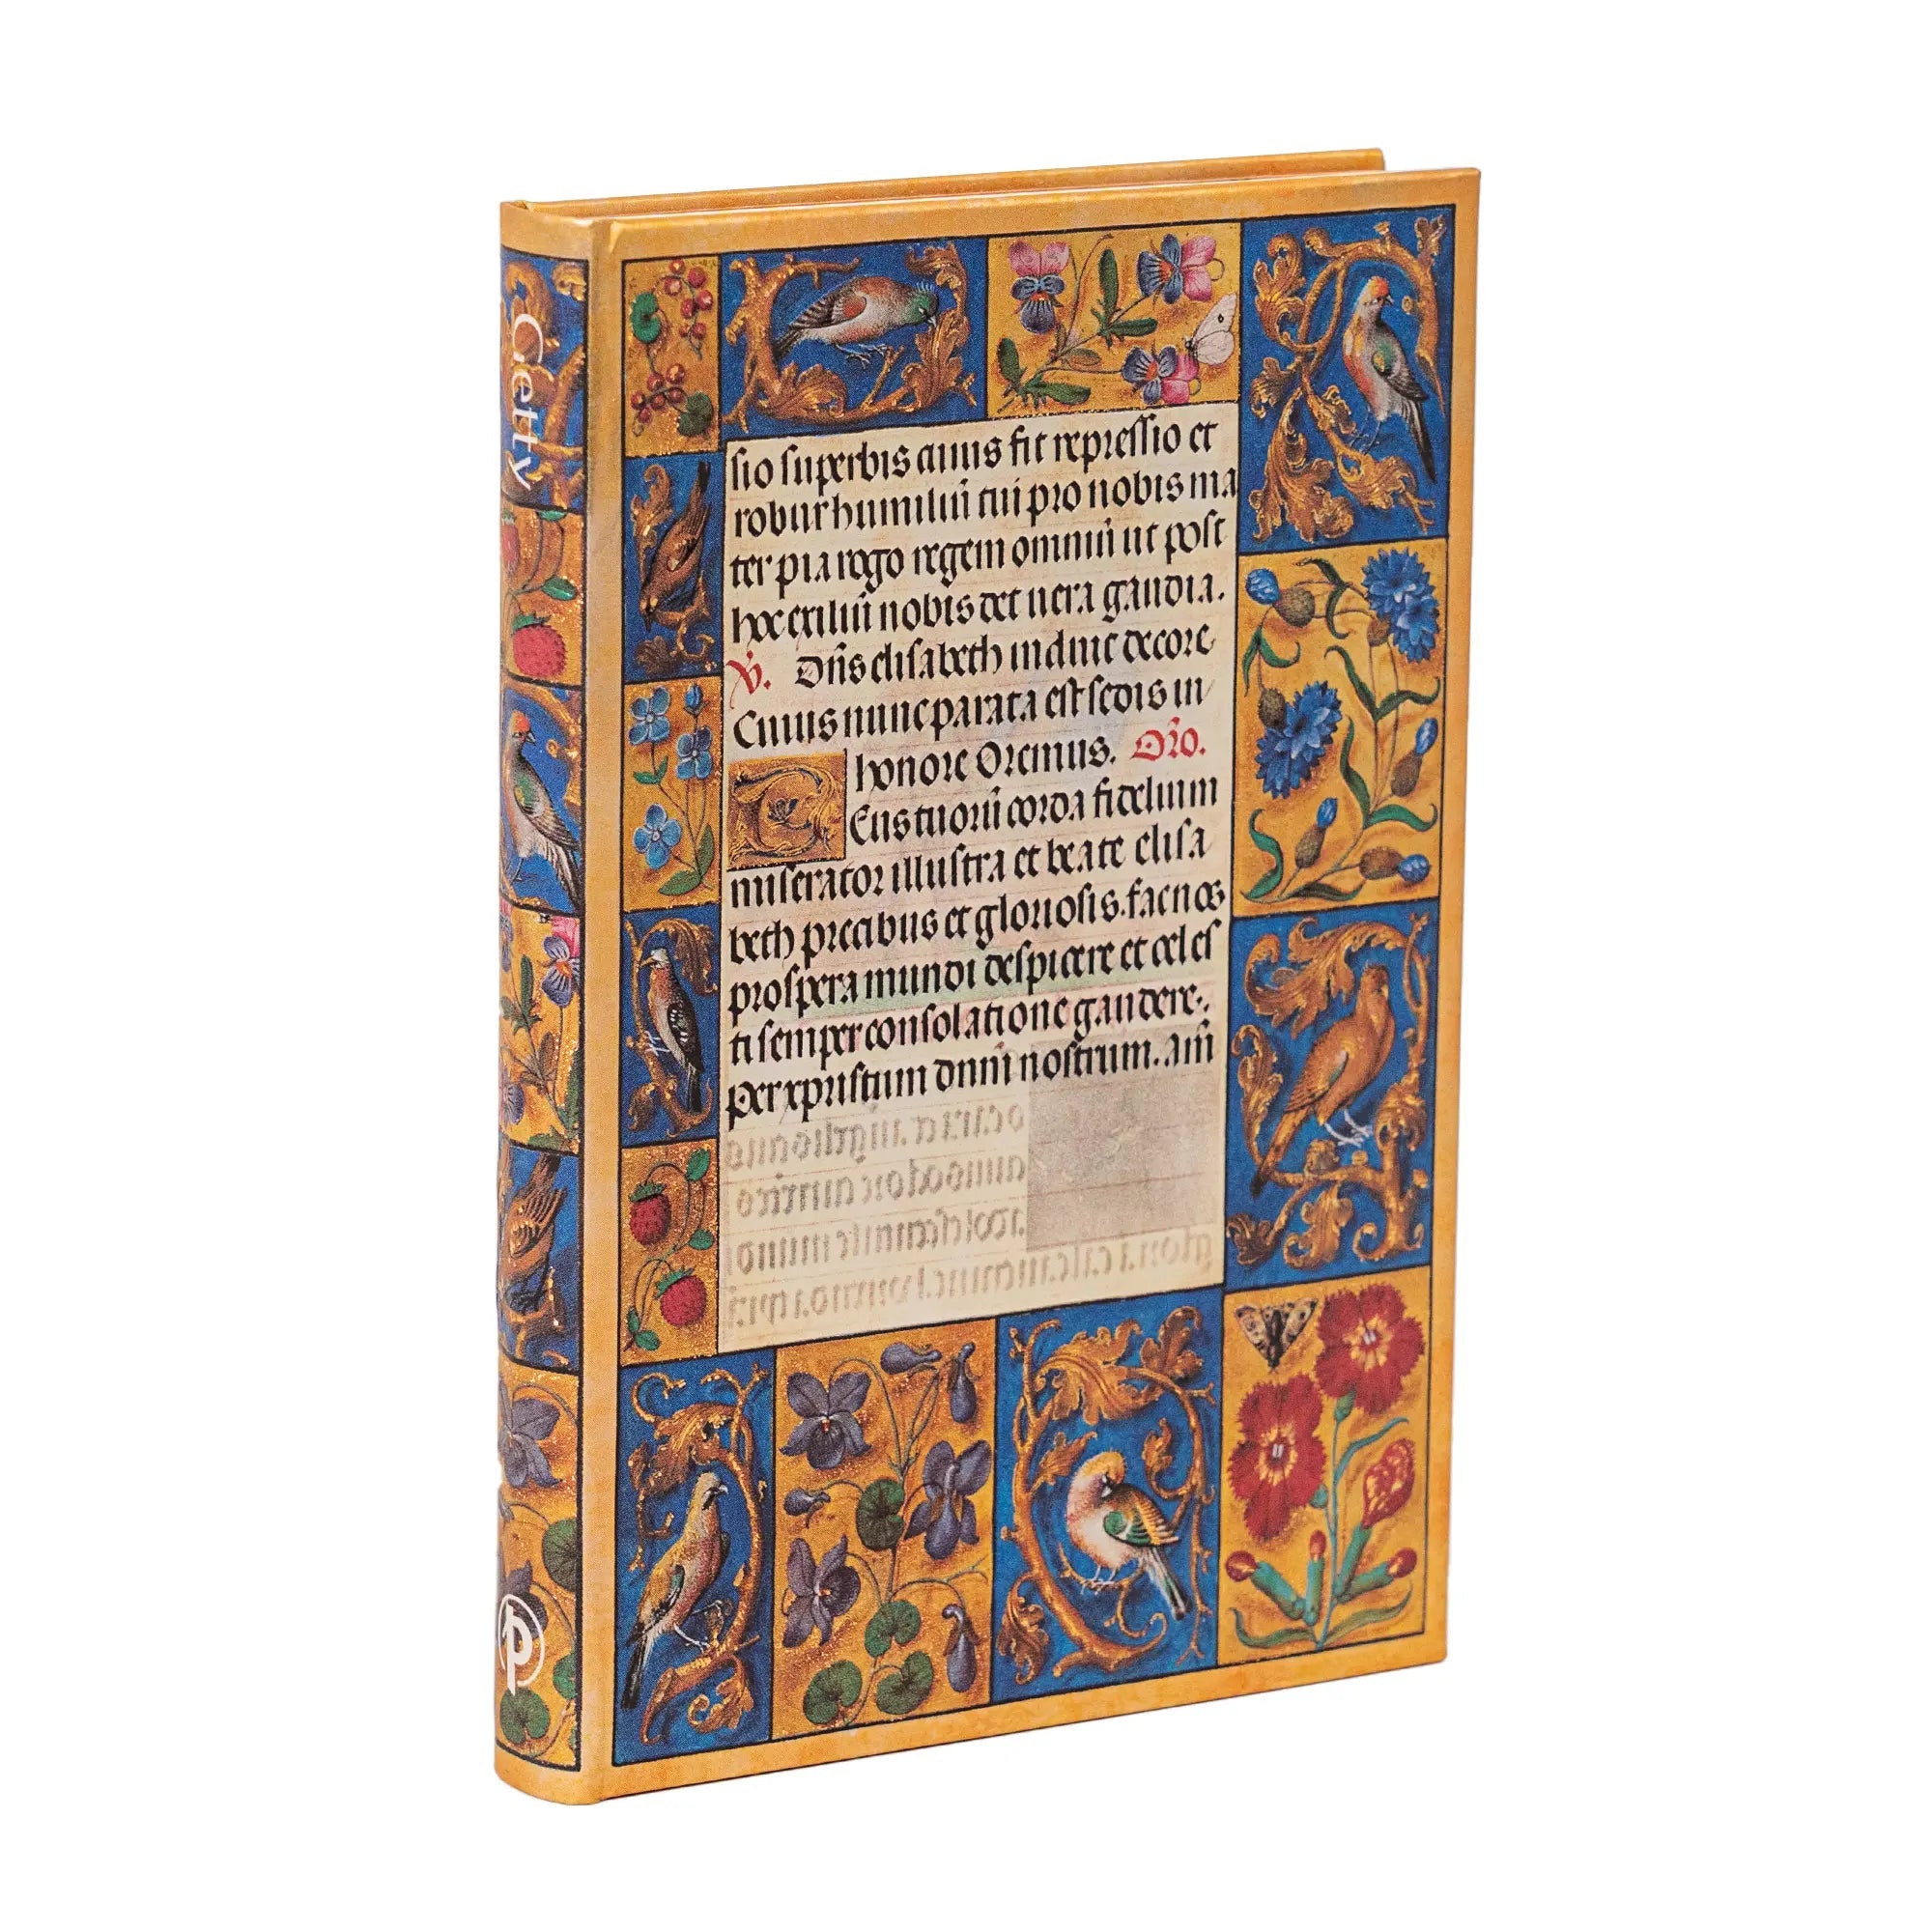 Getty
sio superbis cuius fit repressio et
robur humiliū tui pro nobis ma
ter pia rogo regem omniū ut post
hoc exiliū nobis det uera gaudia.
V. Dn̄s elisabeth induit decore
Cuius nunc parata est sedis in
honore Oremus. Or̄o.
Eus tuorū corda fidelium
miserator illustra et beate elisa
beth precibus et gloriosis. fac nos
prospera mundi despicere et celes
ti semper consolatione gaudere.
per xpristum dnm̄ nostrum. am̄